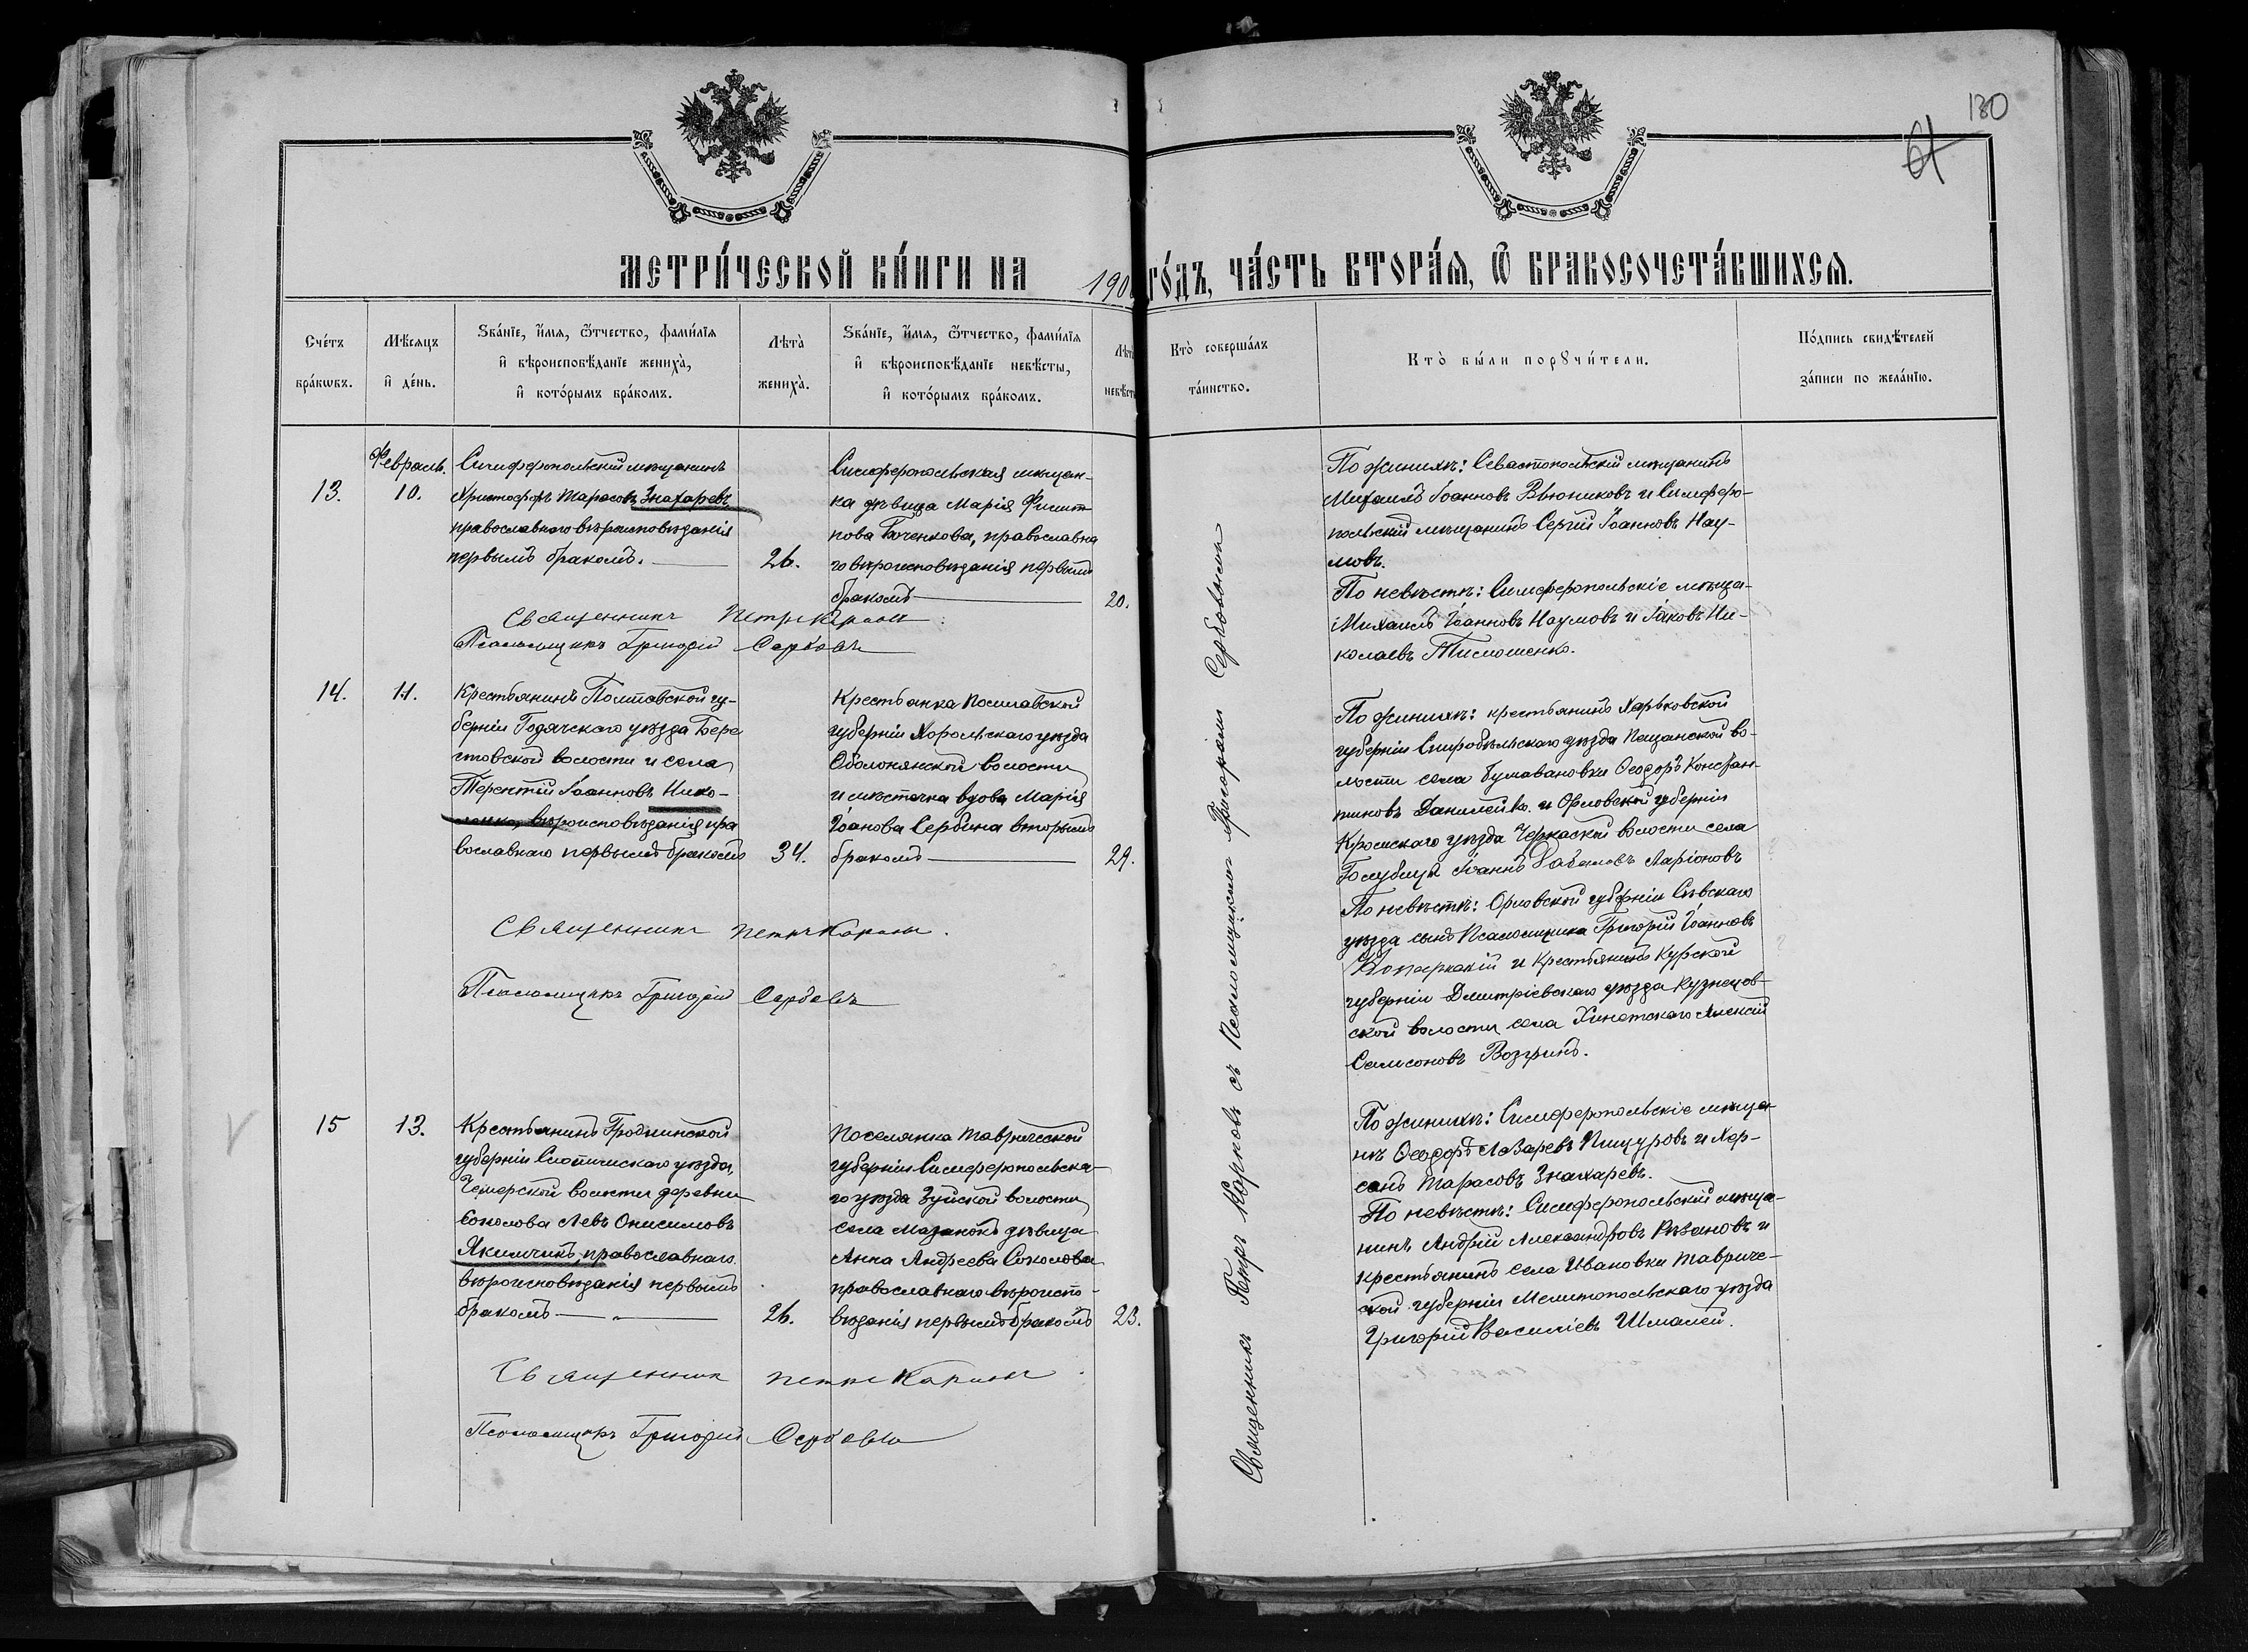 130
61
МЕТРИ́ЧЕСКОЙ КНИ́ГИ НА 190
ГО́ДЪ, ЧА́СТЬ ВТОРА́Я, Ѿ БРАКОСОЧЕТА́ВШИХСЯ.
Сче́тъ бра́кωвъ.
Мѣ́сяцъ и҆ де́нь.
Ѕва́нїе, и҆́мя, ѻ҆́тчество, фами́лїя
и҆ вѣроисповѣ́данїе жениха̀,
и҆ кото́рымъ бра́комъ.
Лѣта̀ жениха̀.
Ѕва́нїе, и҆́мя, ѻ҆́тчество, фами́лїя
и҆ вѣроисповѣ́данїе невѣ́сты,
и҆ кото́рымъ бра́комъ.
Лѣта̀ невѣ́ст
Кто̀ соверша́лъ
та́инство.
Кто̀ бы́ли порꙋчи́тели.
По́дпись свидѣ́телей
за́писи по жела́нїю.
13.
Февраль.
10.
Симферопольскій мѣщанинъ
Христофоръ Тарасовъ Знахаревъ
православнаго вѣроисповѣданія
первымъ бракомъ.
26.
Симферопольская мѣщан-
ка дѣвица Марія Филип-
пова Боченкова, православна
го вѣроисповѣданія первымъ
бракомъ
20.
Священникъ Петръ Карповъ
Псаломщикъ Григорій Сербовъ
По женихѣ: Севастопольскій мѣщанинъ
Михаилъ Іоанновъ Вьюниковъ и Симферо-
польскій мѣщанинъ Сергій Іоанновъ Нау-
мовъ.
По невѣстѣ: Симферопольскіе мѣща-
Михаилъ Іоанновъ Наумовъ и Іаковъ Ни-
колаевъ Тимошенко.
14.
11.
Крестьянинъ Полтавской гу-
берніи Гадячскаго уѣзда Бере
стовской волости и села
Терентій Іоанновъ Нико-
ленко, вѣроисповѣданія пра
вославнаго первымъ бракомъ
34.
Крестьянка Полтавской
губерніи Хорольскаго уѣзда
Оболонянской волости
и мѣстечка вдова Марія
Іоанова Сербина вторымъ
бракомъ
29.
Священникъ Петръ Карповъ.
Псаломщикъ Григорій Сербовъ
По женихѣ: крестьянинъ Харьковской
губерніи Старобѣльскаго уѣзда Пещанской во-
лости села Булавановки Ѳеодоръ Констан-
тиновъ Данилейко и Орловской губерніи
Кромскаго уѣзда Черкаской волости села
Голубица Іоаннъ Ларіоновъ
По невѣстѣ: Орловской губерніи Сѣвскаго
уѣзда сынъ Псаломщика Григорій Іоанновъ
и Крестьянинъ Курской
губерніи Дмитріевскаго уѣзда Кузнецов-
ской волости села Алексій
Самсоновъ Возгринъ.
15
13.
Крестьянинъ Гродненской
губерніи Слонимскаго уѣзда,
Чемерской волости деревни
Соколова Левъ Онисимовъ
Якимчикъ, православнаго
вѣроисповѣданія первымъ
бракомъ
26.
Поселянка Таврической
губерніи Симферопольска-
го уѣзда Зуйской волости
села Мазанокъ дѣвица
Анна Андреева Соколова
православнаго вѣроиспо-
вѣданія первымъ бракомъ
23.
Священникъ Петръ Карповъ
Псаломщикъ Григорій Сербовъ
По женихѣ: Симферопольскіе мѣща-
нѣ Ѳеодоръ Лазаревъ Пищуровъ и Хер-
санъ Тарасовъ Знахаревъ.
По невѣстѣ: Симферопольскій мѣща-
нинъ Андрій Александровъ Рѣзановъ и
крестьянинъ села Ивановки Тавриче-
ской губерніи Мелитопольскаго уѣзда
Григорій Василіевъ Шмалей.
Священникъ Петръ Карповъ съ Псаломщикомъ Григоріемъ Сербовымъ